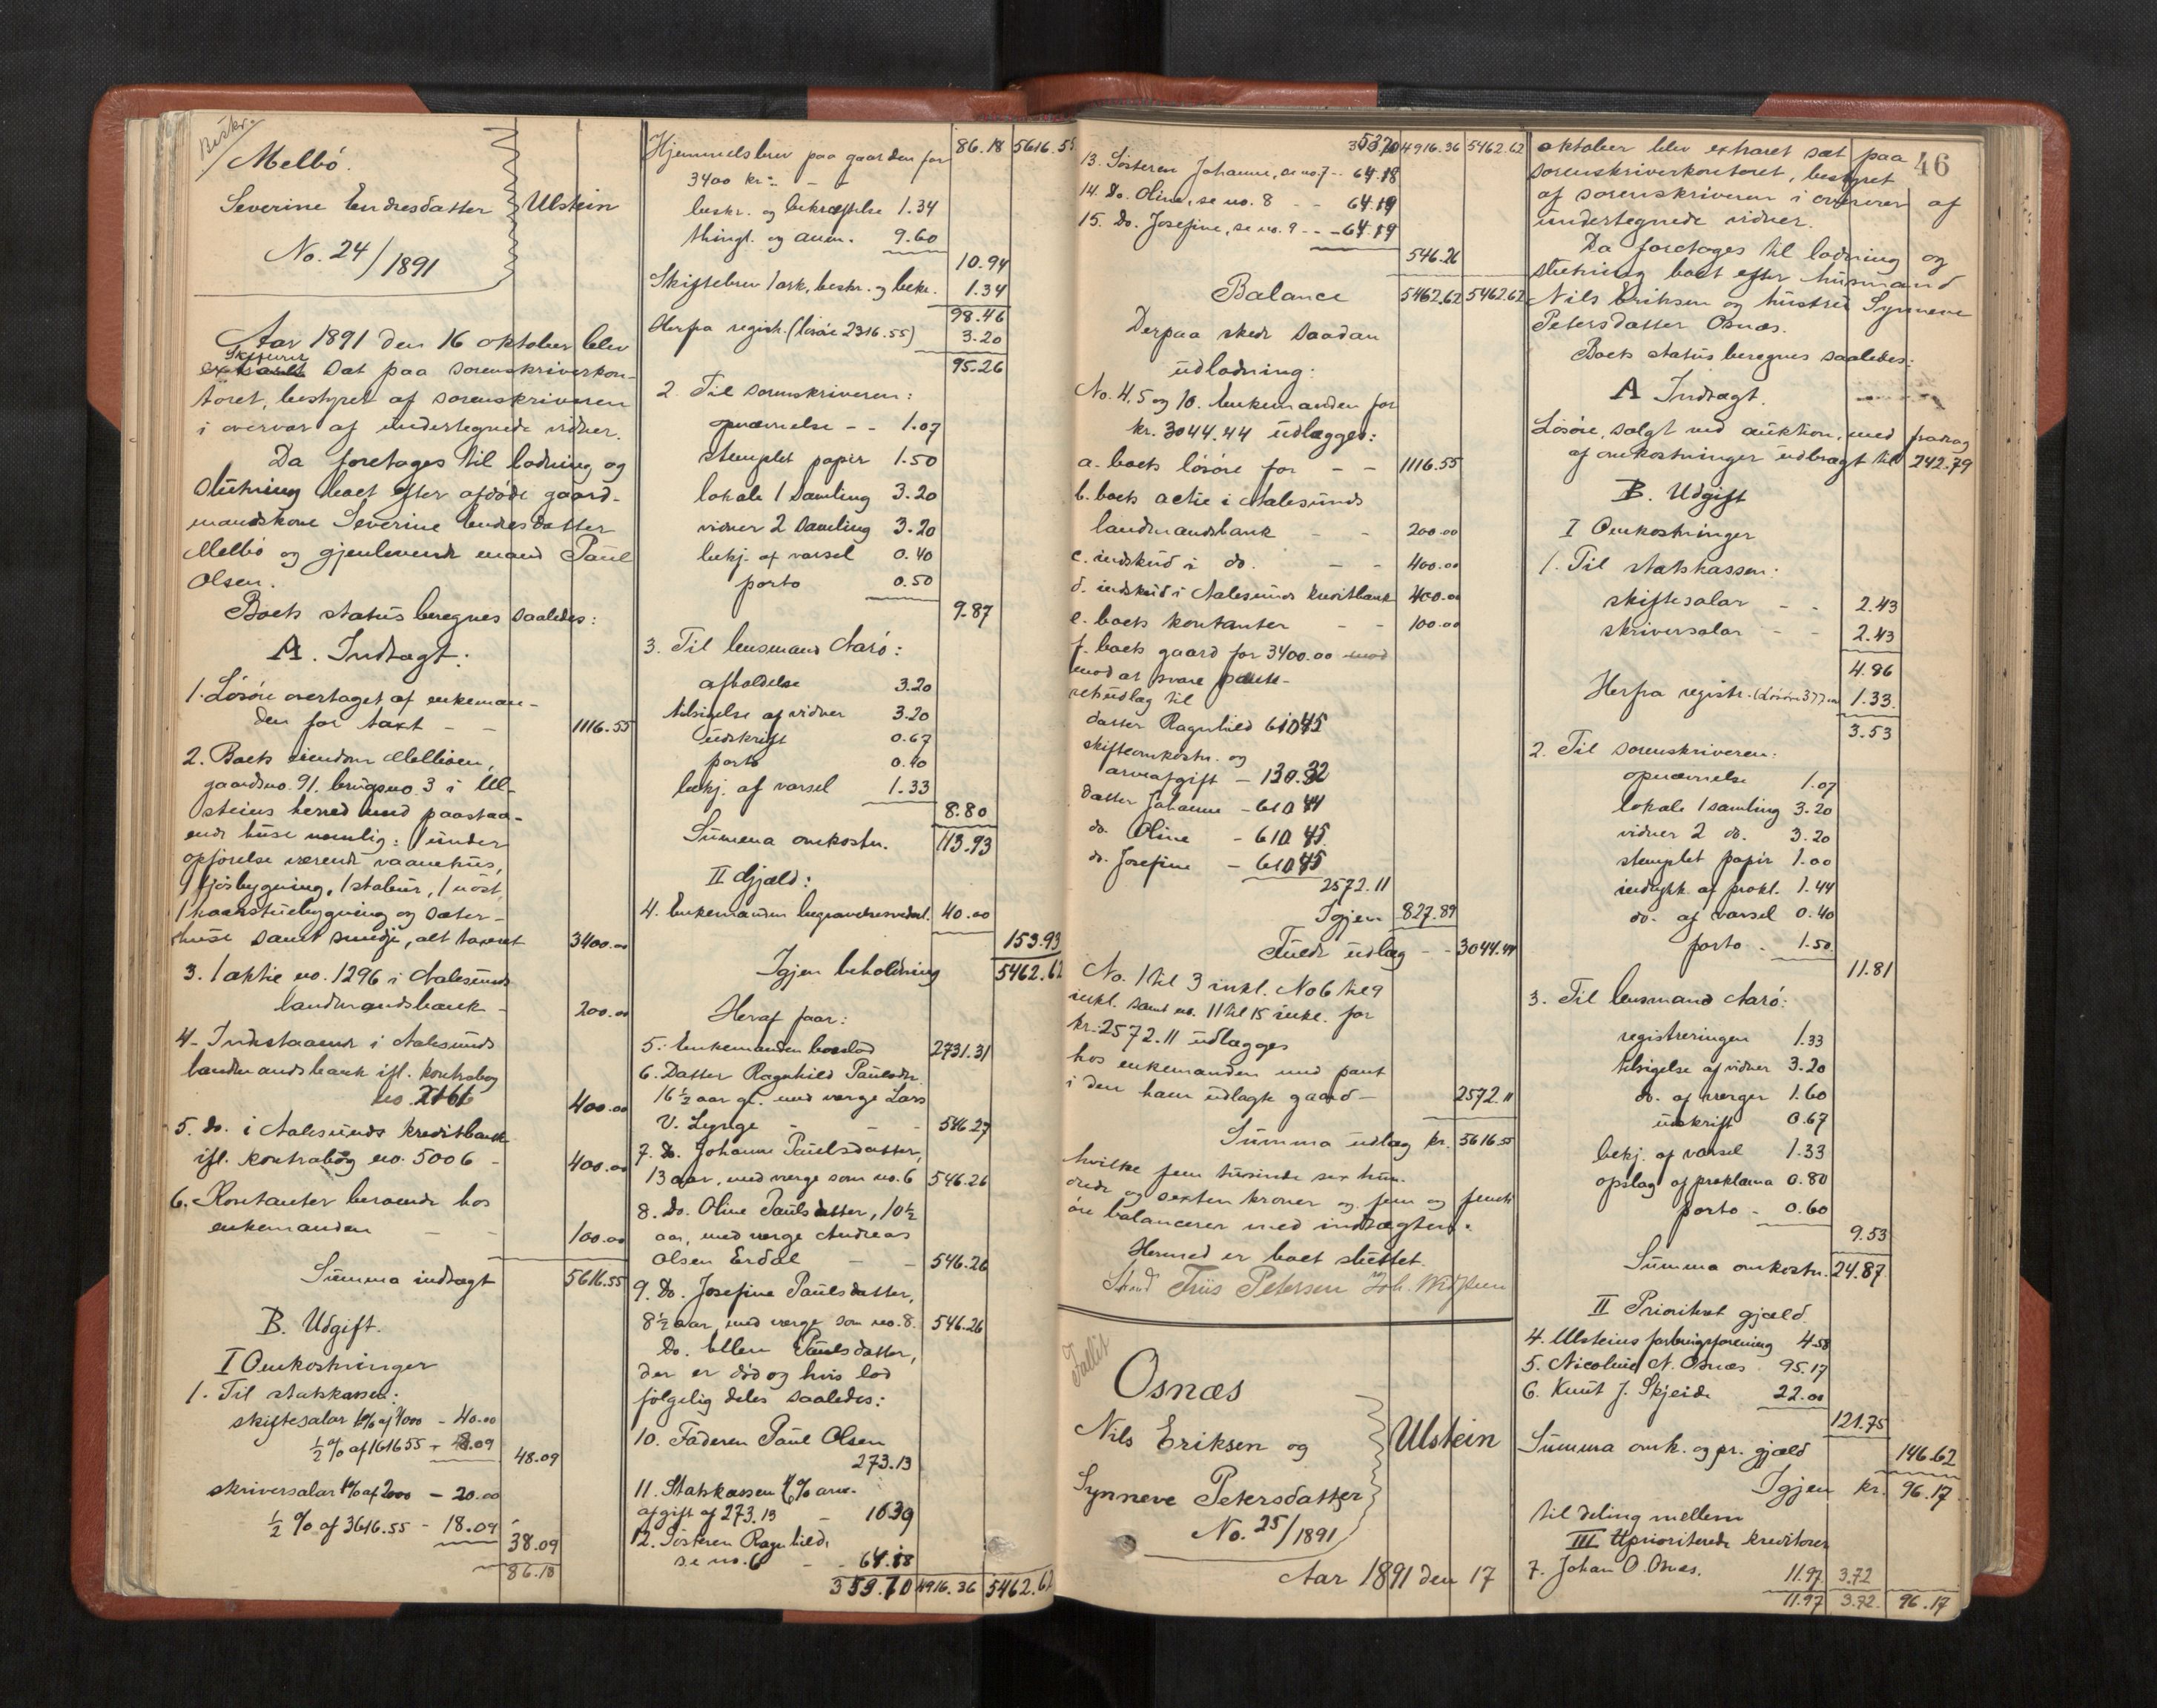 Beskr.
Melbö.
Severine Endresdatter Ulstein
No. 24/1891
Aar 1891 den 16 oktober blev
skifteret
extraret sat paa sorenskriverkon-
toret, bestyret af sorenskriveren
i overvær af undertegnede vidner.
Da foretages til lodning og
slutning boet efter afdøde gaard-
mandskone Severine Endresdatter
Melbö og gjenlevende mand Paul
Olsen.
Boets status beregnes saaledes:
A. Indtægt:
1. Lösöre overtaget af enkeman-
den for taxt - - 1116.55
2. Boets eiendom Melböen,
gaardsno. 91, brugsno. 3 i Ul-
steins herred med paastaa-
ende huse nemlig: 1 under
opförelse værende vaanehus,
1 fjösbygning, 1 stabur, 1 nöst,
1 kaarstuebygning og sæter-
huse samt smidje, alt taxeret 3400.00
3. 1 aktie no. 1296 i Aalesunds
landmandsbank - 200.00
4. Indestaaende i Aalesunds
landmandsbank ifl. kontrabog
no. 2766 400.00
5. do. i Aalesunds kreditbank
ifl. kontrabog no. 5006 - 400.00
6. Kontanter beroende hos
enkemanden - - 100.00
Summa indtægt 5616.55
B. Udgift.
I Omkostninger
1. Til statskassen:
skiftesalar 1% af 4000 - 40.00
½ % af 1616.55 - 8.09
48.09
skriversalar 1% af 2000 - 20.00
½ % af 3616.55 - 18.09
38.09
86.18
86.18 5616.55
Hjemmelsbrev paa gaarden for
3400 kr: - -
beskr. og bekræftelse 1.34
thingl. og anm. 9.60
10.94
Skiftebrev 1 ark, beskr. og bekr. 1.34
98.46
Herfra registr. (lösöre 2316.55) 3.20
95.26
2. Til sorenskriveren:
opnævnelse - - 1.07
stemplet papir 1.50
lokale 1 samling 3.20
vidner 2 samling 3.20
bekj. af varsel 0.40
porto 0.50
9.87
3. Til lensmand Aarö:
afholdelse 3.20
tilsigelse af vidner 3.20
udskrift 0.67
porto 0.40
bekj. af varsel 1.33
8.80
Summa omkostn. 113.93
II Gjæld:
4. Enkemanden begravelsesvederl. 40.00
153.93
Igjen beholdning 5462.62
Heraf faar:
5. Enkemanden boeslod 2731.31
6. Datter Ragnhild Paulsdtr.
16½ aar gl. med værge Lars
V. Lynge - - - 546.27
7. Do. Johanne Paulsdatter,
13 aar, med værge som no. 6 546.26
8. Do. Oline Paulsdatter, 10½
aar, med værge Andreas
Olsen Erdal - - 546.26
9. Do. Josefine Paulsdatter,
8½ aar, med værge som no. 8. 546.26
Do. Ellen Paulsdatter,
der er död og hvis lod
fölgelig deles saaledes:
10. Faderen Paul Olsen
273.13
11. Statskassen 6% arve-
afgift af 273.13 - 16.39
12. Sösteren Ragnhild,
se no. 6 - - 64.18
353.70 4916.36 5462.62
353.70 4916.36 5462.62
13. Sösteren Johanne, se no. 7 - - 64.18
14. Do. Oline, se no. 8 - - 64.19
15. Do. Josefine, se no. 9 - - 64.19
546.26
Balance 5462.62 5462.62
Derpaa skede saadan
udlodning:
No. 4, 5 og 10. Enkemanden for
kr. 3044.44 udlægges:
a. boets lösöre for - - 1116.55
b. boets actie i Aalesunds
landmandsbank - - 200.00
c. indskud i do. - - 400.00
d. indskud i Aalesunds kreditbank 400.00
e. boets kontanter - - 100.00
f. boets gaard for 3400.00 mod
mod at svare pante-
retudlæg til
datter Ragnhild 610.45
skifteomkostn. og
arveafgift - 130.32
datter Johanne - 610.44
do. Oline - 610.45
do. Josefine - 610.45
2572.11
Igjen 827.89
Fuldt udlæg - - 3044.44
No. 1 til 3 inkl. No 6 til 9
inkl. samt no. 11 til 15 inkl. for
kr. 2572.11 udlægges
hos enkemanden med pant
i den ham udlagte gaard - 2572.11
Summa udlæg kr. 5616.55
hvilke fem tusinde sex hun-
drede og sexten kroner og fem og femti
öre balancerer med indtægten.
Hermed er boet sluttet.
Friis Petersen Joh.
Fallit
Osnæs
Nils Eriksen og Ulstein
Synneve Petersdatter
No. 25/1891
Aar 1891 den 17
46
oktober blev extraret sat paa
sorenskriverkontoret, bestyret
af sorenskriveren i overvær af
undertegnede vidner.
Da foretages til lodning og
slutning boet efter husmand
Nils Eriksen og hustru Synneve
Petersdatter Osnæs.
Boets status beregnes saaledes:
A Indtægt.
Lösöre, solgt ved auktion, med fradrag
af omkostninger udbragt til 242.79
B. Udgift
I Omkostninger
1. Til statskassen:
skiftesalar - - 2.43
skriversalar - - 2.43
4.86
Herfra registr. (Lösöre 377 1.33
3.53
2. Til sorenskriveren:
opnævnelse 1.07
lokale 1 samling 3.20
vidner 2 do. 3.20
stemplet papir 1.00
indrykk. af prokl. 1.44
do. af varsel 0.40
porto - 1.50
11.81
3. Til lensmand Aarö:
registreringen 1.33
tilsigelse af vidner 3.20
do. af værger 1.60
udskrift 0.67
bekj. af varsel 1.33
opslag af proklama 0.80
porto - 0.60
9.53
Summa omkostn. 24.87
II Prioritert gjæld
4. Ulsteins forbrugsforening 4.58
5. Nicoline N. Osnæs 95.17
6. Knut J. Skjeide 22.00
121.75
Summa omk. og pr. gjæld 146.62
Igjen kr. 96.17
til deling mellem
III Uprioriterede kreditorer
7. Johan O. Osnæs. 11.97 3.72
11.97 3.72. 96.17